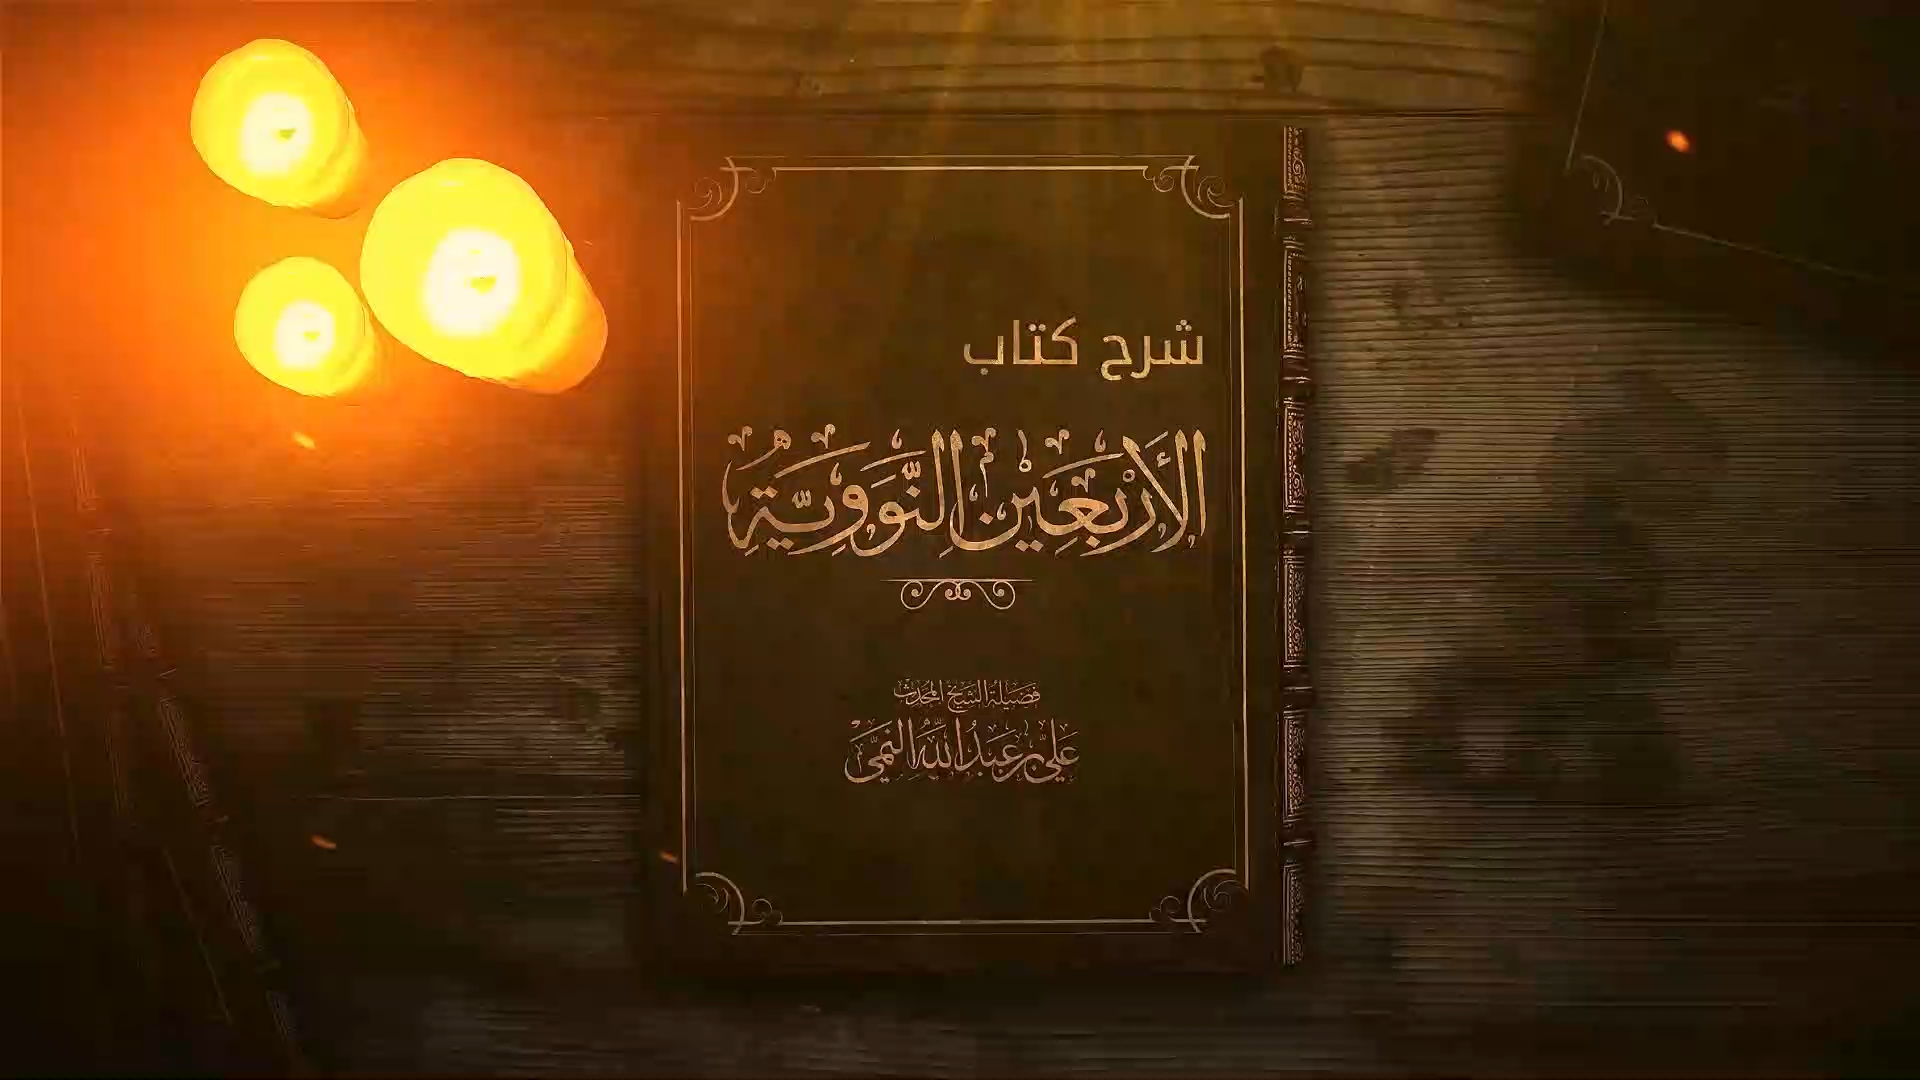 شرح كتاب
الأَرْبَعِين النَّوَوِيَّةِ
فضيلة الشيخ المحدث
علي بن عبد الله النمي